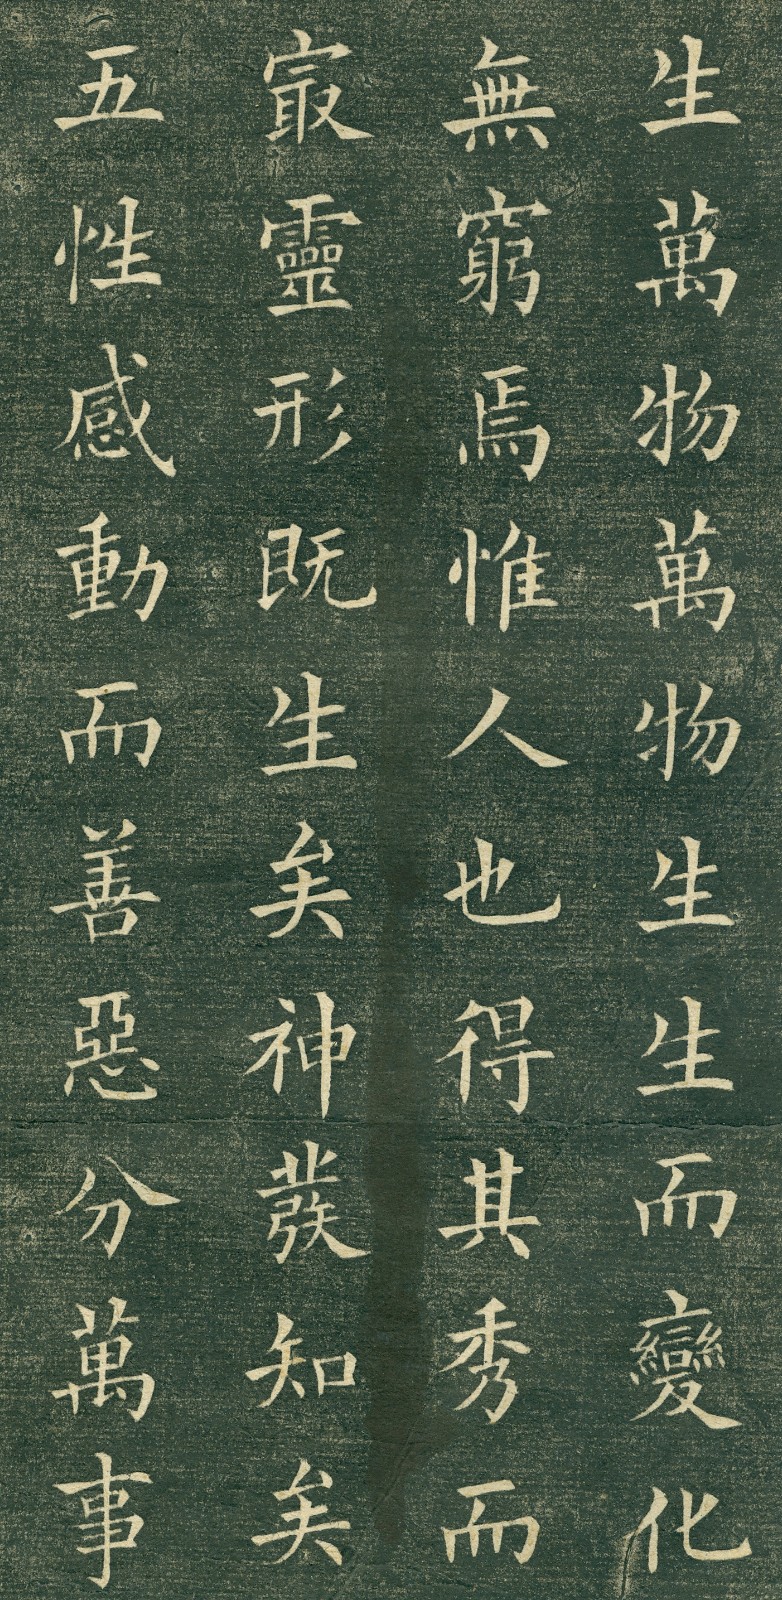 生萬物萬物生生而變化
無窮焉惟人也得其秀而
冣靈形既生矣神發知矣
五性感動而善惡分萬事